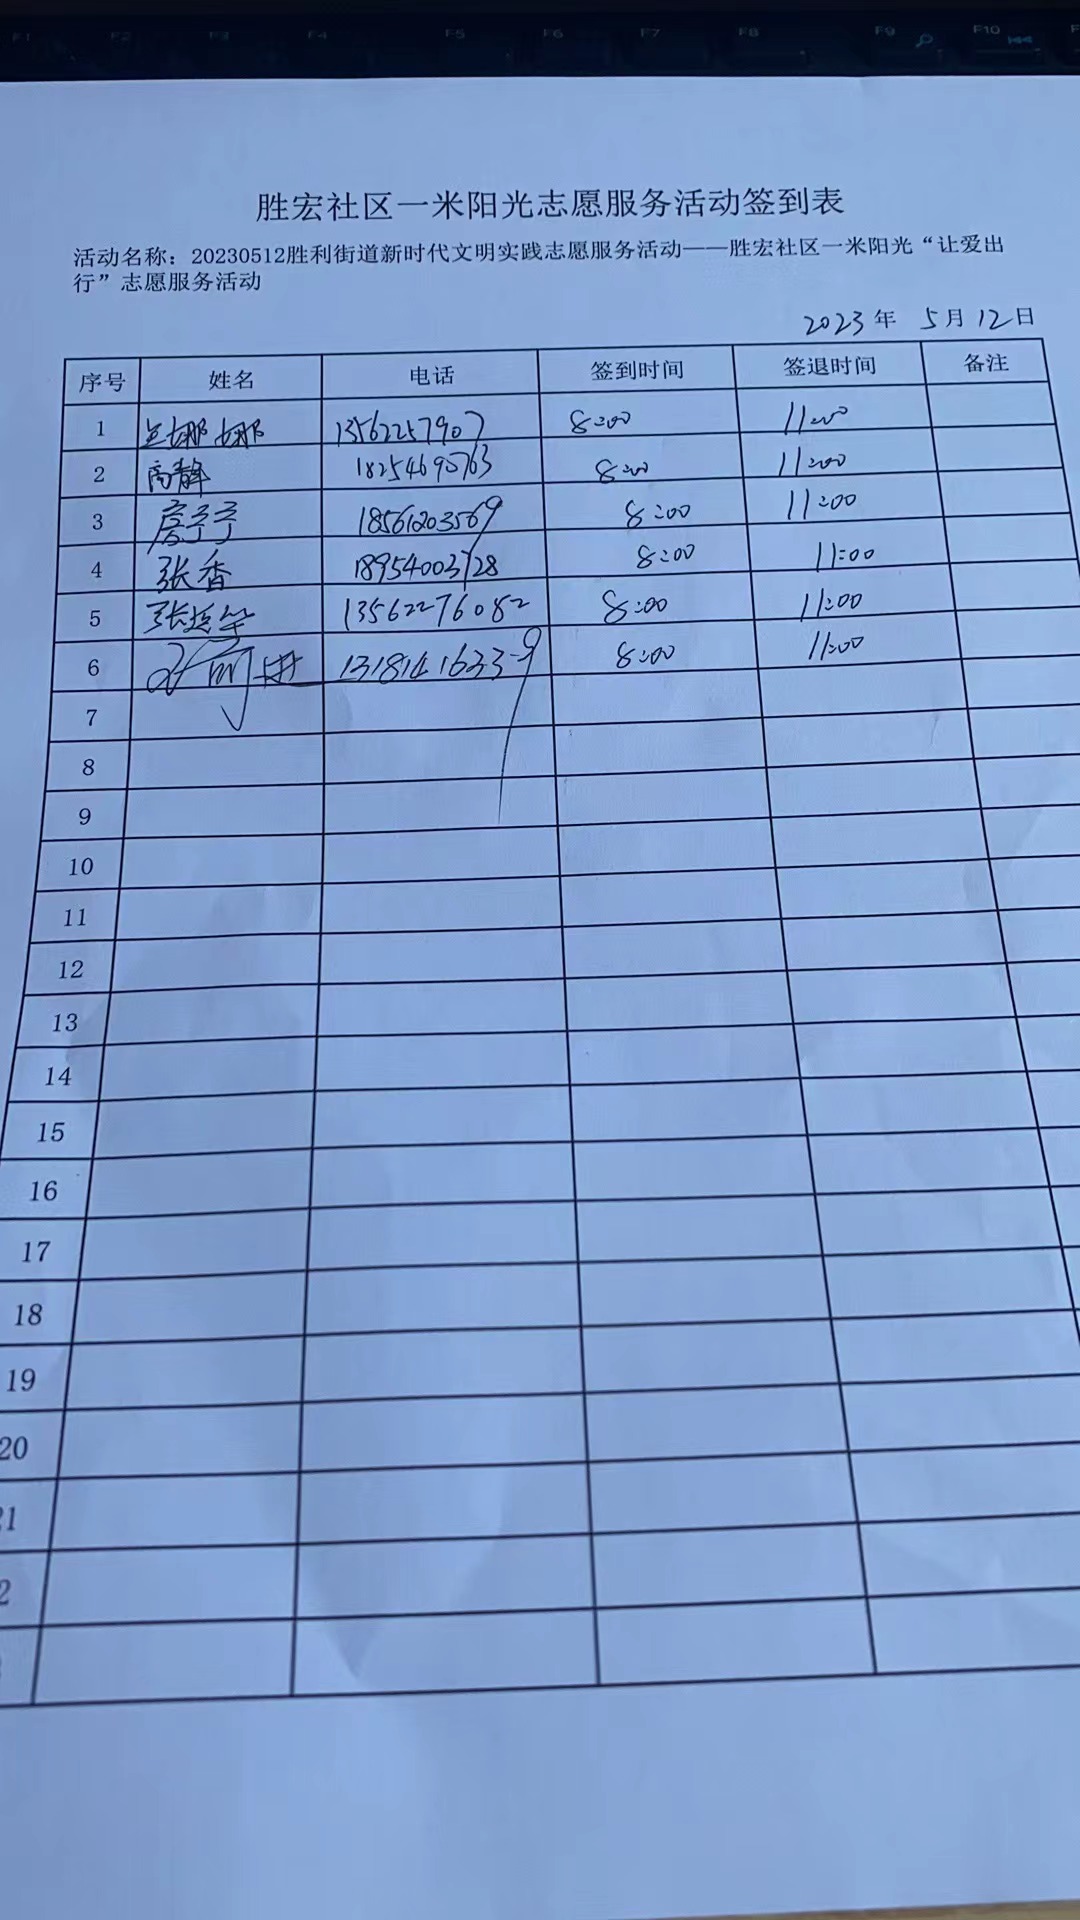 F1 F2 F3 F4 F5 F6 F7 F8 F9 F10
胜宏社区一米阳光志愿服务活动签到表
活动名称：20230512胜利街道新时代文明实践志愿服务活动——胜宏社区一米阳光“让爱出
行”志愿服务活动
2023年 5月12日
序号 姓名 电话 签到时间 签退时间 备注
1 兰娜娜 13562257907 8:00 11:00
2 高静 18254690763 8:00 11:00
3 18561203569 8:00 11:00
4 张香 18954003728 8:00 11:00
5 张 13562276082 8:00 11:00
6 13181416339 8:00 11:00
7
8
9
10
11
12
13
14
15
16
17
18
19
20
21
2